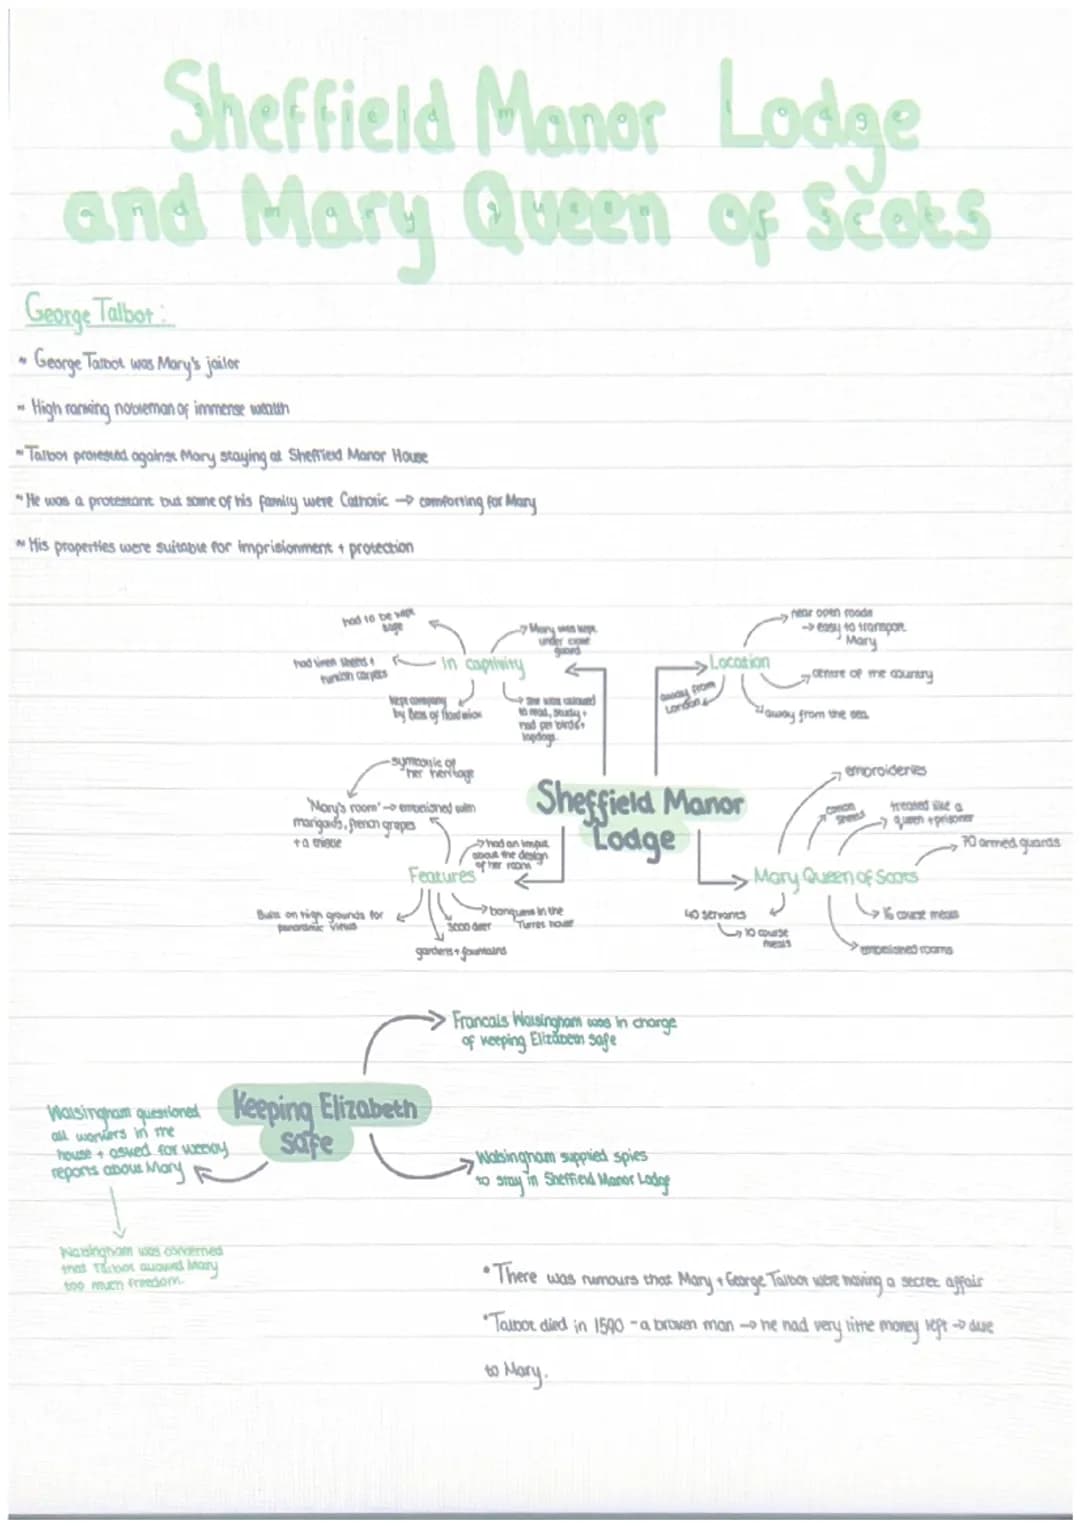 Sheffield Manor Lodge
sheffield manor lodge
and Mary Queen of Scots
and mary queen of scots
George Talbot:
~ George Talbot was Mary's jailor
~ High ranking nobleman of immense wealth
~ Talbot protested against Mary staying at Sheffield Manor House
~ He was a protestant but some of his family were Catholic → comforting for Mary
~ His properties were suitable for imprisionment + protection
had to be kept
safe
Mary was kept
under close
guard
In captivity
had linen sheets +
turkish carpets
kept company
by Bess of Hardwick
she was allowed
to read, study +
had pet birds +
lapdogs
near open roads
→ easy to transport
Mary
Location
centre of the country
away from
London
away from the sea
Sheffield Manor
Lodge
symbolic of
her heritage
'Mary's room' → embelished with
marigolds, french grapes
+ a thistle
had an imput
about the design
of her room
Features
Built on high grounds for
panoramic views
3000 deer
banquets in the
Turret house
gardens + fountains
embroideries
sheets
treated like a
queen + prisoner
70 armed guards
Mary Queen of Scots
40 servants
→ 10 course
meals
16 course meals
embelished rooms
Francais Walsingham was in charge
of keeping Elizabeth safe
Keeping Elizabeth
safe
Walsingham questioned
all workers in the
house + asked for weekly
reports about Mary
Walsingham supplied spies
to stay in Sheffield Manor Lodge
Walsingham was concerned
that Talbot allowed Mary
too much freedom.
• There was rumours that Mary + George Talbot were having a secret affair
• Talbot died in 1590 - a broken man → he had very little money left → due
to Mary.